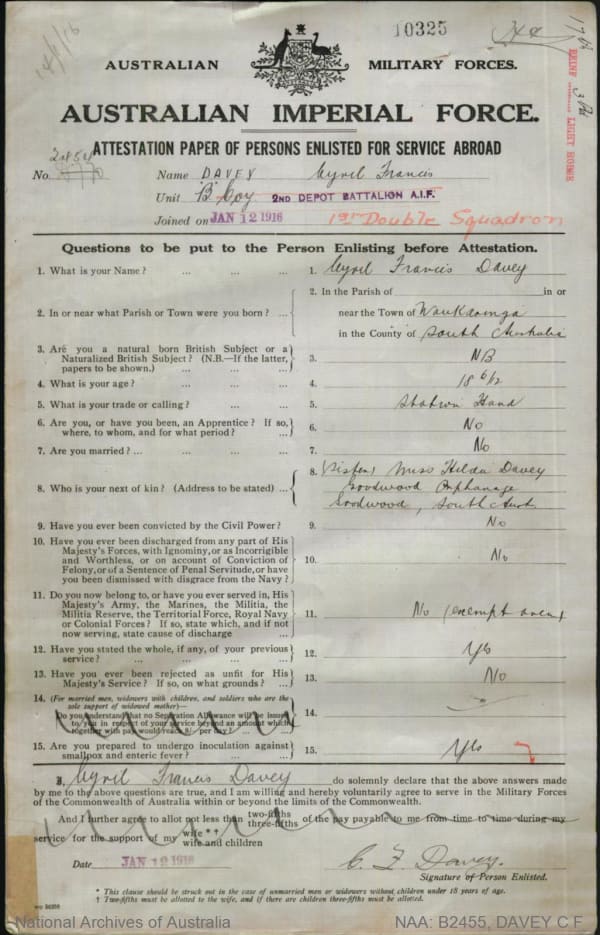 10325
AUSTRALIAN MILITARY FORCES.
AUSTRALIAN IMPERIAL FORCE.
ATTESTATION PAPER OF PERSONS ENLISTED FOR SERVICE ABROAD
No. Name DAVEY Cyril Francis
Unit "B" Coy 2ND DEPOT BATTALION A.I.F.
Joined on JAN 12 1916 1st Double Squadron
REINF LIGHT HORSE
Questions to be put to the Person Enlisting before Attestation.
1. What is your Name? ... ... ... 1. Cyril Francis Davey
2. In or near what Parish or Town were you born? ... 2. In the Parish of in or
near the Town of Waukaringa
in the County of South Australia
3. Are you a natural born British Subject or a
Naturalized British Subject? (N.B.—If the latter,
papers to be shown.) ... ... 3. NB
4. What is your age? ... ... ... 4. 18 6/12
5. What is your trade or calling? ... ... 5. Station Hand
6. Are you, or have you been, an Apprentice? If so,
where, to whom, and for what period? ... 6. No
7. Are you married? ... ... ... 7. No
8. Who is your next of kin? (Address to be stated) ... 8. (Sister) Miss Hilda Davey
Goodwood Orphanage
Goodwood, South Aust
9. Have you ever been convicted by the Civil Power? 9. No
10. Have you ever been discharged from any part of His
Majesty's Forces, with Ignominy, or as Incorrigible
and Worthless, or on account of Conviction of
Felony, or of a Sentence of Penal Servitude, or have
you been dismissed with disgrace from the Navy? 10. No
11. Do you now belong to, or have you ever served in, His
Majesty's Army, the Marines, the Militia, the
Militia Reserve, the Territorial Force, Royal Navy
or Colonial Forces? If so, state which, and if not
now serving, state cause of discharge ... 11. No (exempt area)
12. Have you stated the whole, if any, of your previous
service? ... ... ... ... 12. Yes
13. Have you ever been rejected as unfit for His
Majesty's Service? If so, on what grounds? ... 13. No
14. (For married men, widowers with children, and soldiers who are the
sole support of widowed mother)—
Do you understand that no Separation Allowance will be issued
to you in respect of your service beyond an amount which
together with pay would reach 8/- per day? ... 14.
15. Are you prepared to undergo inoculation against
smallpox and enteric fever? ... ... 15. Yes
I, Cyril Francis Davey do solemnly declare that the above answers made
by me to the above questions are true, and I am willing and hereby voluntarily agree to serve in the Military Forces
of the Commonwealth of Australia within or beyond the limits of the Commonwealth.
And I further agree to allot not less than two-fifths
three-fifths of the pay payable to me from time to time during my
service for the support of my wife *†
wife and children
Date JAN 12 1916 C. F. Davey.
Signature of Person Enlisted.
* This clause should be struck out in the case of unmarried men or widowers without children under 18 years of age.
† Two-fifths must be allotted to the wife, and if there are children three-fifths must be allotted.
National Archives of Australia NAA: B2455, DAVEY C F